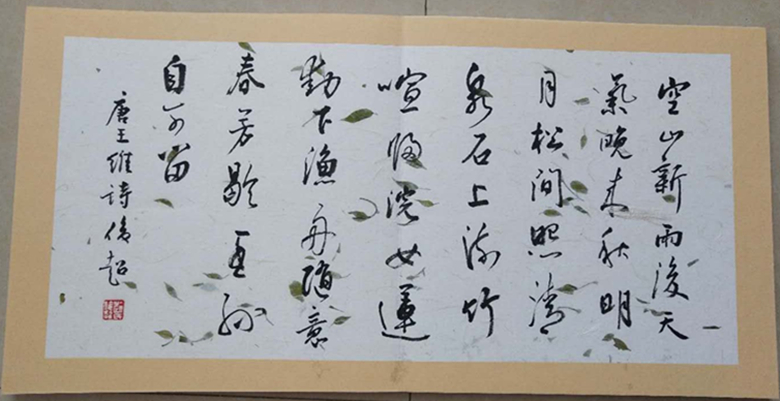 空山新雨後天
氣晚来秋明
月松间照清
泉石上流竹
喧归浣女蓮
動下漁舟随意
春芳歇王孙
自可留
唐王維詩俊超